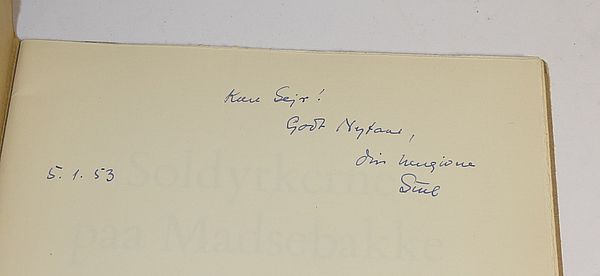 Kære Sejr!
Godt Nytaar,
din hengivne
5.1.53
Soldyrkerne
paa Madsebakke